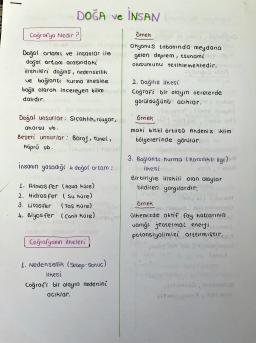 DOĞA ve İNSAN
Coğrafya Nedir?
Doğal ortamı ve insanlar ile
doğal ortam arasındaki
ilişkileri dağılış, nedensellik
ve bağlantı kurma ilkesine
bağlı olarak inceleyen bilim
dalıdır.
Doğal unsurlar: Sıcaklık, rüzgar,
akarsu vb.
Beşeri unsurlar: Baraj, tünel,
köprü vb.
İnsanın yaşadığı 4 doğal ortam:
1. Atmosfer (Hava küre)
2. Hidrosfer (Su küre)
3. Litosfer (Taş küre)
4. Biyosfer (Canlı küre)
Coğrafyanın ilkeleri
1. Nedensellik (Sebep-Sonuç)
ilkesi
Coğrafi bir olayın nedenini
açıklar.
Örnek
Okyanus tabanında meydana
gelen deprem, tsunami
oluşumunu tetiklemektedir.
2. Dağılış ilkesi
Coğrafi bir olayın nerelerde
görüldüğünü açıklar.
Örnek
Maki bitki örtüsü Akdeniz iklim
bölgelerinde görülür.
3. Bağlantı Kurma (Karşılıklı ilgi)
ilkesi
Birbiriyle ilişkili olan olaylar
bildiren yargılardır.
Örnek
Ülkemizde aktif fay hatlarının
varlığı jeotermal enerji
potansiyelimizi arttırmıştır.